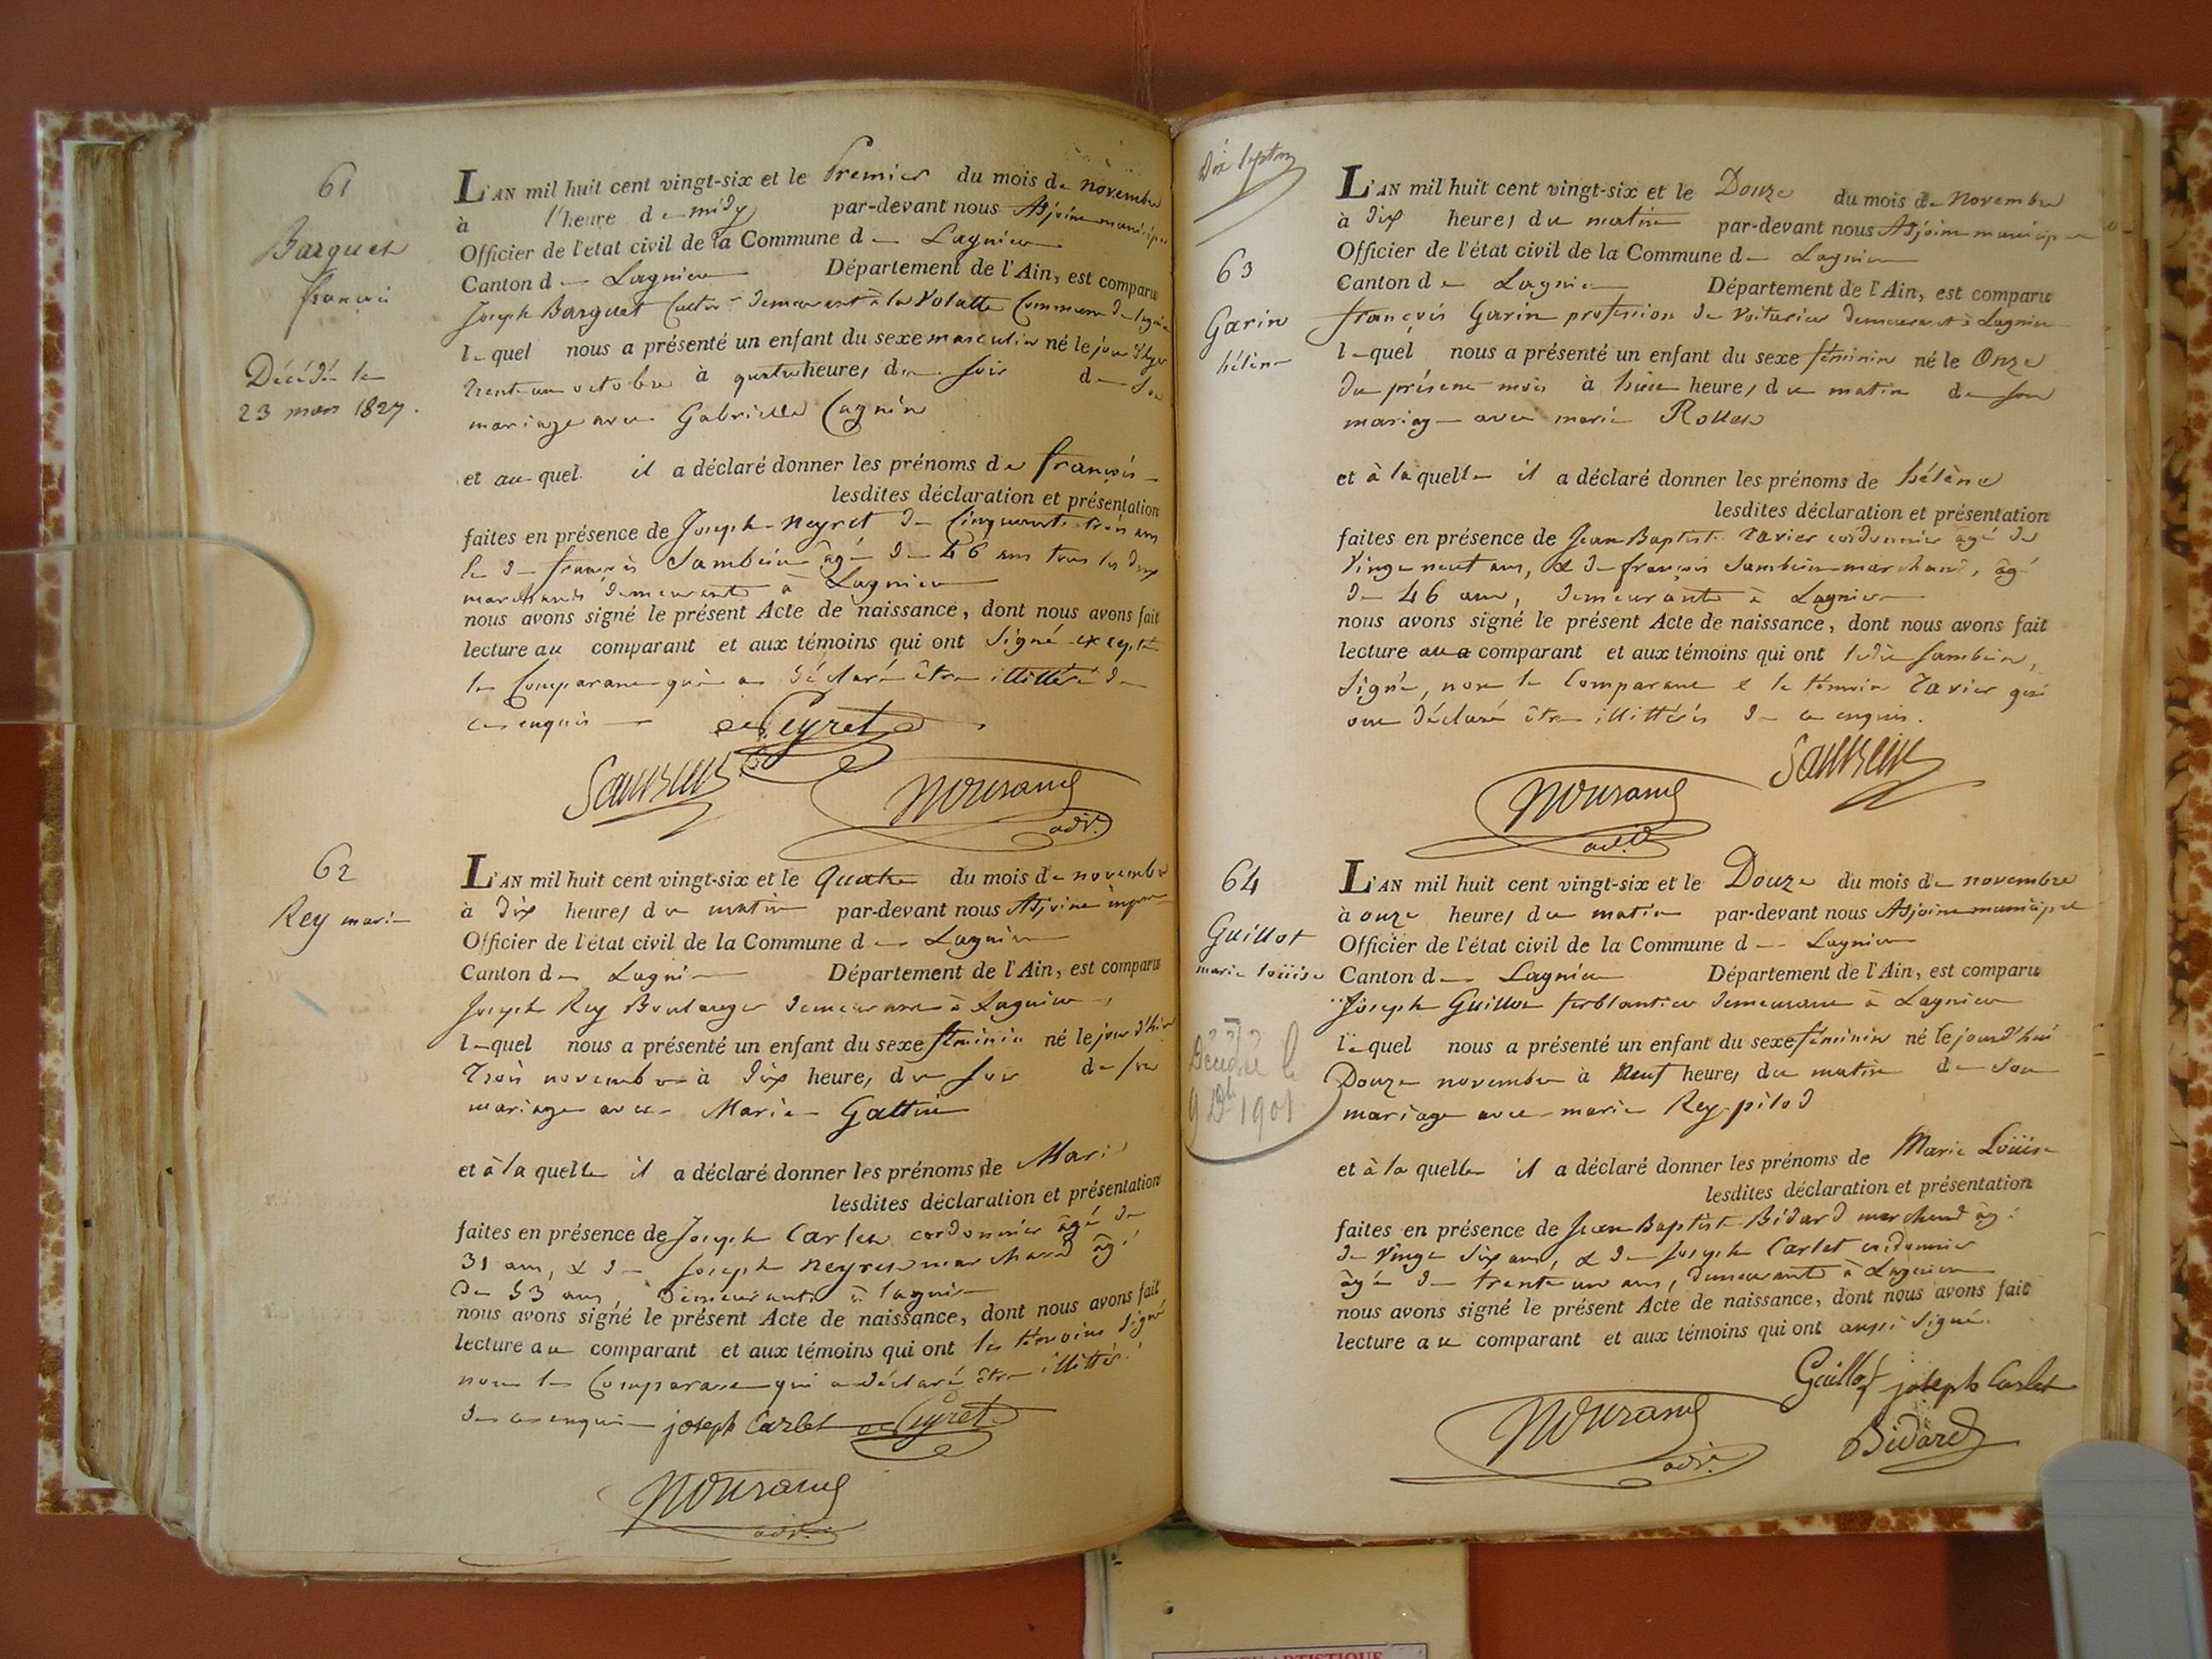 61
Barquet
françois
Décédé le
23 mars 1827.
L'AN mil huit cent vingt-six et le Premier du mois de novembre
à l'heure de midy par-devant nous Adjoint municipal
Officier de l'état civil de la Commune de Lagnieu
Canton de Lagnieu Département de l'Ain, est comparu
Joseph Barquet demeurant à la Commune de Lagnieu
lequel nous a présenté un enfant du sexe masculin né le jour d'hyer
trente un octobre à quatre heures du soir de son
mariage avec Gabrielle Cagnin
et auquel il a déclaré donner les prénoms de françois
lesdites déclaration et présentation
faites en présence de Joseph Neyret de Cinquante trois ans
et de françois Sambein âgé de 46 ans tous les deux
marchands demeurants à Lagnieu
nous avons signé le présent Acte de naissance, dont nous avons fait
lecture au comparant et aux témoins qui ont signé excepté
le Comparant qui a déclaré être illittéré de
ce enquis Neyret
62
Rey marie
L'AN mil huit cent vingt-six et le quatre du mois de novembre
à dix heures du matin par-devant nous Adjoint
Officier de l'état civil de la Commune de Lagnieu
Canton de Lagnieu Département de l'Ain, est comparu
Joseph Rey Boulanger demeurant à Lagnieu,
lequel nous a présenté un enfant du sexe féminin né le jour d'hier
Trois novembre à dix heures du soir de son
mariage avec Marie Gattin
et à laquelle il a déclaré donner les prénoms de Marie
lesdites déclaration et présentation
faites en présence de Joseph Carlet cordonnier âgé de
31 ans, & de Joseph Neyret marchand âgé
de 53 ans, demeurants à lagnieu
nous avons signé le présent Acte de naissance, dont nous avons fait
lecture au comparant et aux témoins qui ont les témoins signé
non le Comparant qui a déclaré être illittéré
de ce enquis joseph Carlet Neyret
63
Garin
hélène
L'AN mil huit cent vingt-six et le Douze du mois de Novembre
à dix heures du matin par-devant nous Adjoint municipal
Officier de l'état civil de la Commune de Lagnieu
Canton de Lagnieu Département de l'Ain, est comparu
françois Garin profession de Voiturier demeurant à Lagnieu
lequel nous a présenté un enfant du sexe féminin né le Onze
du présent mois à huit heures du matin de son
mariage avec marie Rollet
et à laquelle il a déclaré donner les prénoms de hélène
lesdites déclaration et présentation
faites en présence de Jean Baptiste Tavier cordonnier âgé de
Vingt neuf ans, & de françois Sambein marchand, âgé
de 46 ans, demeurants à Lagnieu
nous avons signé le présent Acte de naissance, dont nous avons fait
lecture au comparant et aux témoins qui ont ledit Sambein,
signé, non le Comparant & le témoin Tavier qui
ont déclaré être illittérés de ce enquis.
64
Guillot
marie loüise
Décédée le
1901
L'AN mil huit cent vingt-six et le Douze du mois de novembre
à onze heures du matin par-devant nous Adjoint municipal
Officier de l'état civil de la Commune de Lagnieu
Canton de Lagnieu Département de l'Ain, est comparu
Joseph Guillot ferblantier demeurant à Lagnieu
lequel nous a présenté un enfant du sexe féminin né le jourd'hui
Douze novembre à Neuf heures du matin de son
mariage avec marie Rey-pilod
et à laquelle il a déclaré donner les prénoms de Marie Loüise
lesdites déclaration et présentation
faites en présence de Jean Baptiste Bidard marchand âgé
de Vingt dix ans, & de Joseph Carlet cordonnier
âgé de trente un ans, demeurants à Lagnieu
nous avons signé le présent Acte de naissance, dont nous avons fait
lecture au comparant et aux témoins qui ont aussi signé.
Guillot joseph Carlet
Bidard